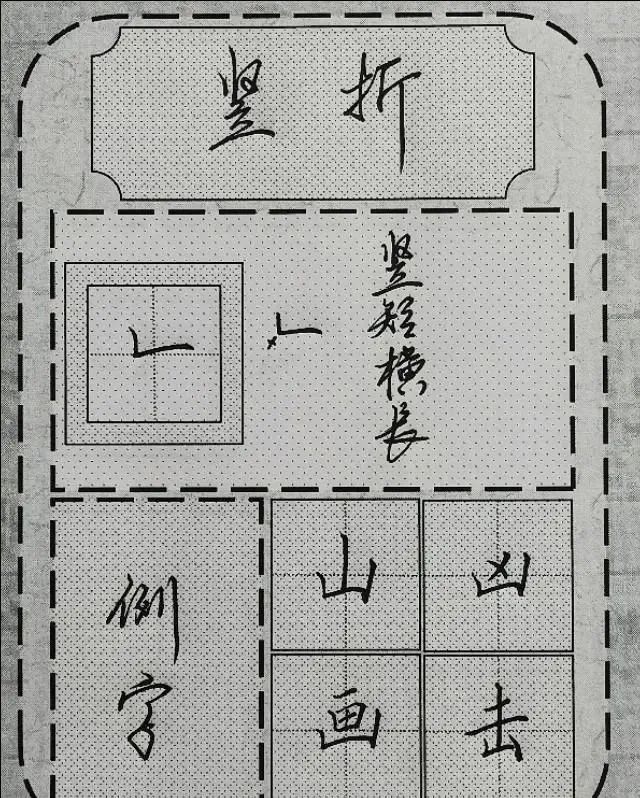 竖折
𠃊
竖短横長
例字
山
凶
画
击